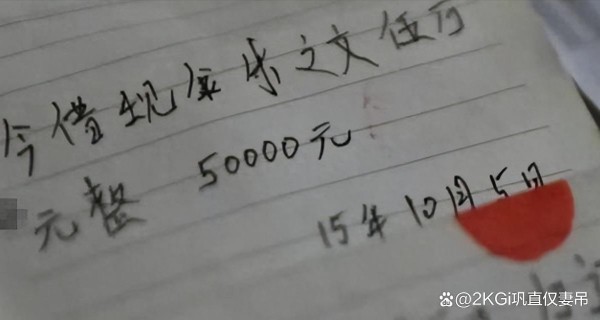 今借现金朱之文伍万
元整 50000元
15年10月5日
@2KGi巩直仅妻吊